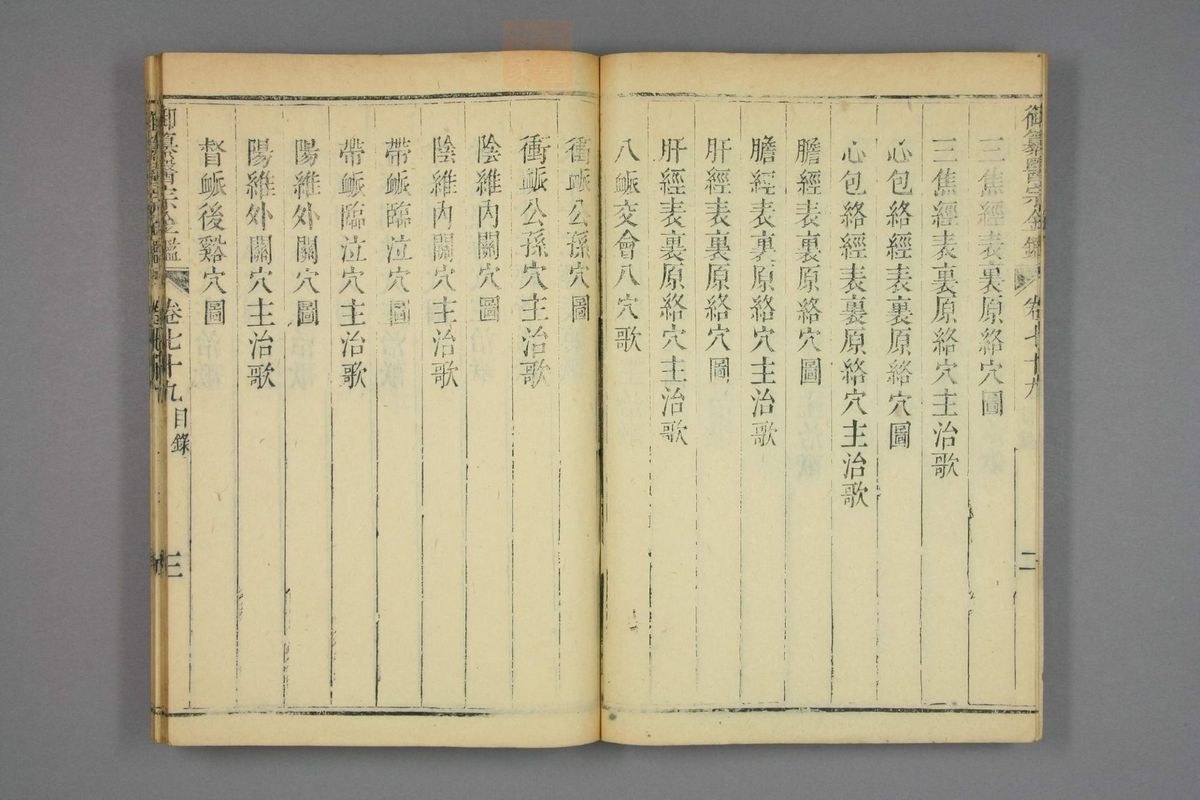 御纂醫宗金鑑 卷七十九 二
三焦經表裏原絡穴圖
三焦經表裏原絡穴主治歌
心包絡經表裏原絡穴圖
心包絡經表裏原絡穴主治歌
膽經表裏原絡穴圖
膽經表裏原絡穴主治歌
肝經表裏原絡穴圖
肝經表裏原絡穴主治歌
八衇交會八穴歌
衝衇公孫穴圖
衝衇公孫穴主治歌
陰維內關穴圖
陰維內關穴主治歌
帶衇臨泣穴圖
帶衇臨泣穴主治歌
陽維外關穴圖
陽維外關穴主治歌
督衇後谿穴圖
御纂醫宗金鑑 卷七十九目錄 三